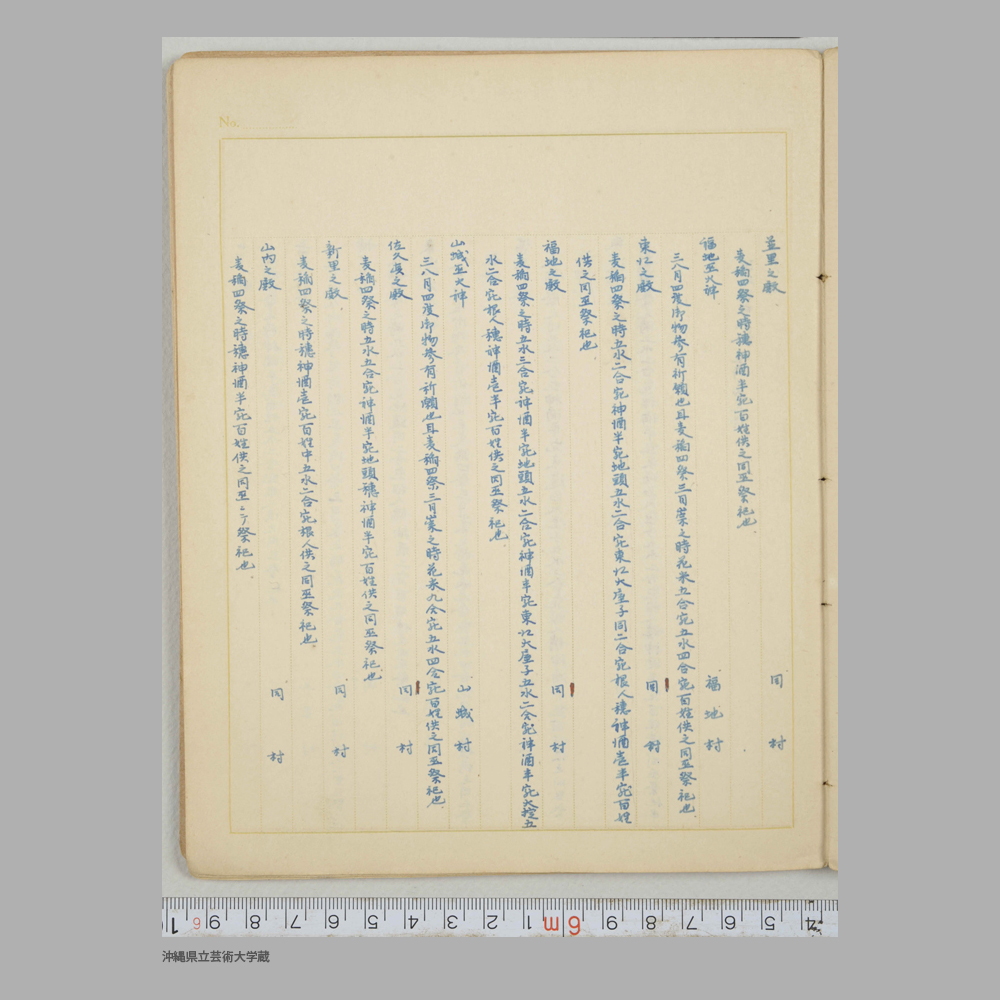 No.
並里之殿　同村
麦稲四祭之時穂神酒半宛百姓供之同巫祭祀也
福地巫火神　福地村
三八月四度御物参有祈願也且麦稲四祭三月崇之時花米五合宛五水四合宛百姓供之同巫祭祀也
東江之殿　同村
麦稲四祭之時五水二合宛神酒半宛地頭五水二合宛東江大屋子同二合宛根人穂神酒壱半宛百姓
供之同巫祭祀也
福地之殿　同村
麦稲四祭之時五水三合宛神酒半宛地頭五水二合宛神酒半宛東江大屋子五水二合宛神酒半宛大掟五
水二合宛根人穂神酒壱半宛百姓供之同巫祭祀也
山城巫火神　山城村
三八月四度御物参有祈願也且麦稲四祭三月崇之時花米九合宛五水四合宛百姓供之同巫祭祀也
佐久真之殿　同村
麦稲四祭之時五水五合宛神酒半宛地頭穂神酒半宛百姓供之同巫祭祀也
新里之殿　同村
麦稲四祭之時穂神酒壱宛百姓中五水二合宛根人供之同巫祭祀也
山内之殿　同村
麦稲四祭之時穂神酒半宛百姓供之同巫ニテ祭祀也
沖縄県立芸術大学蔵